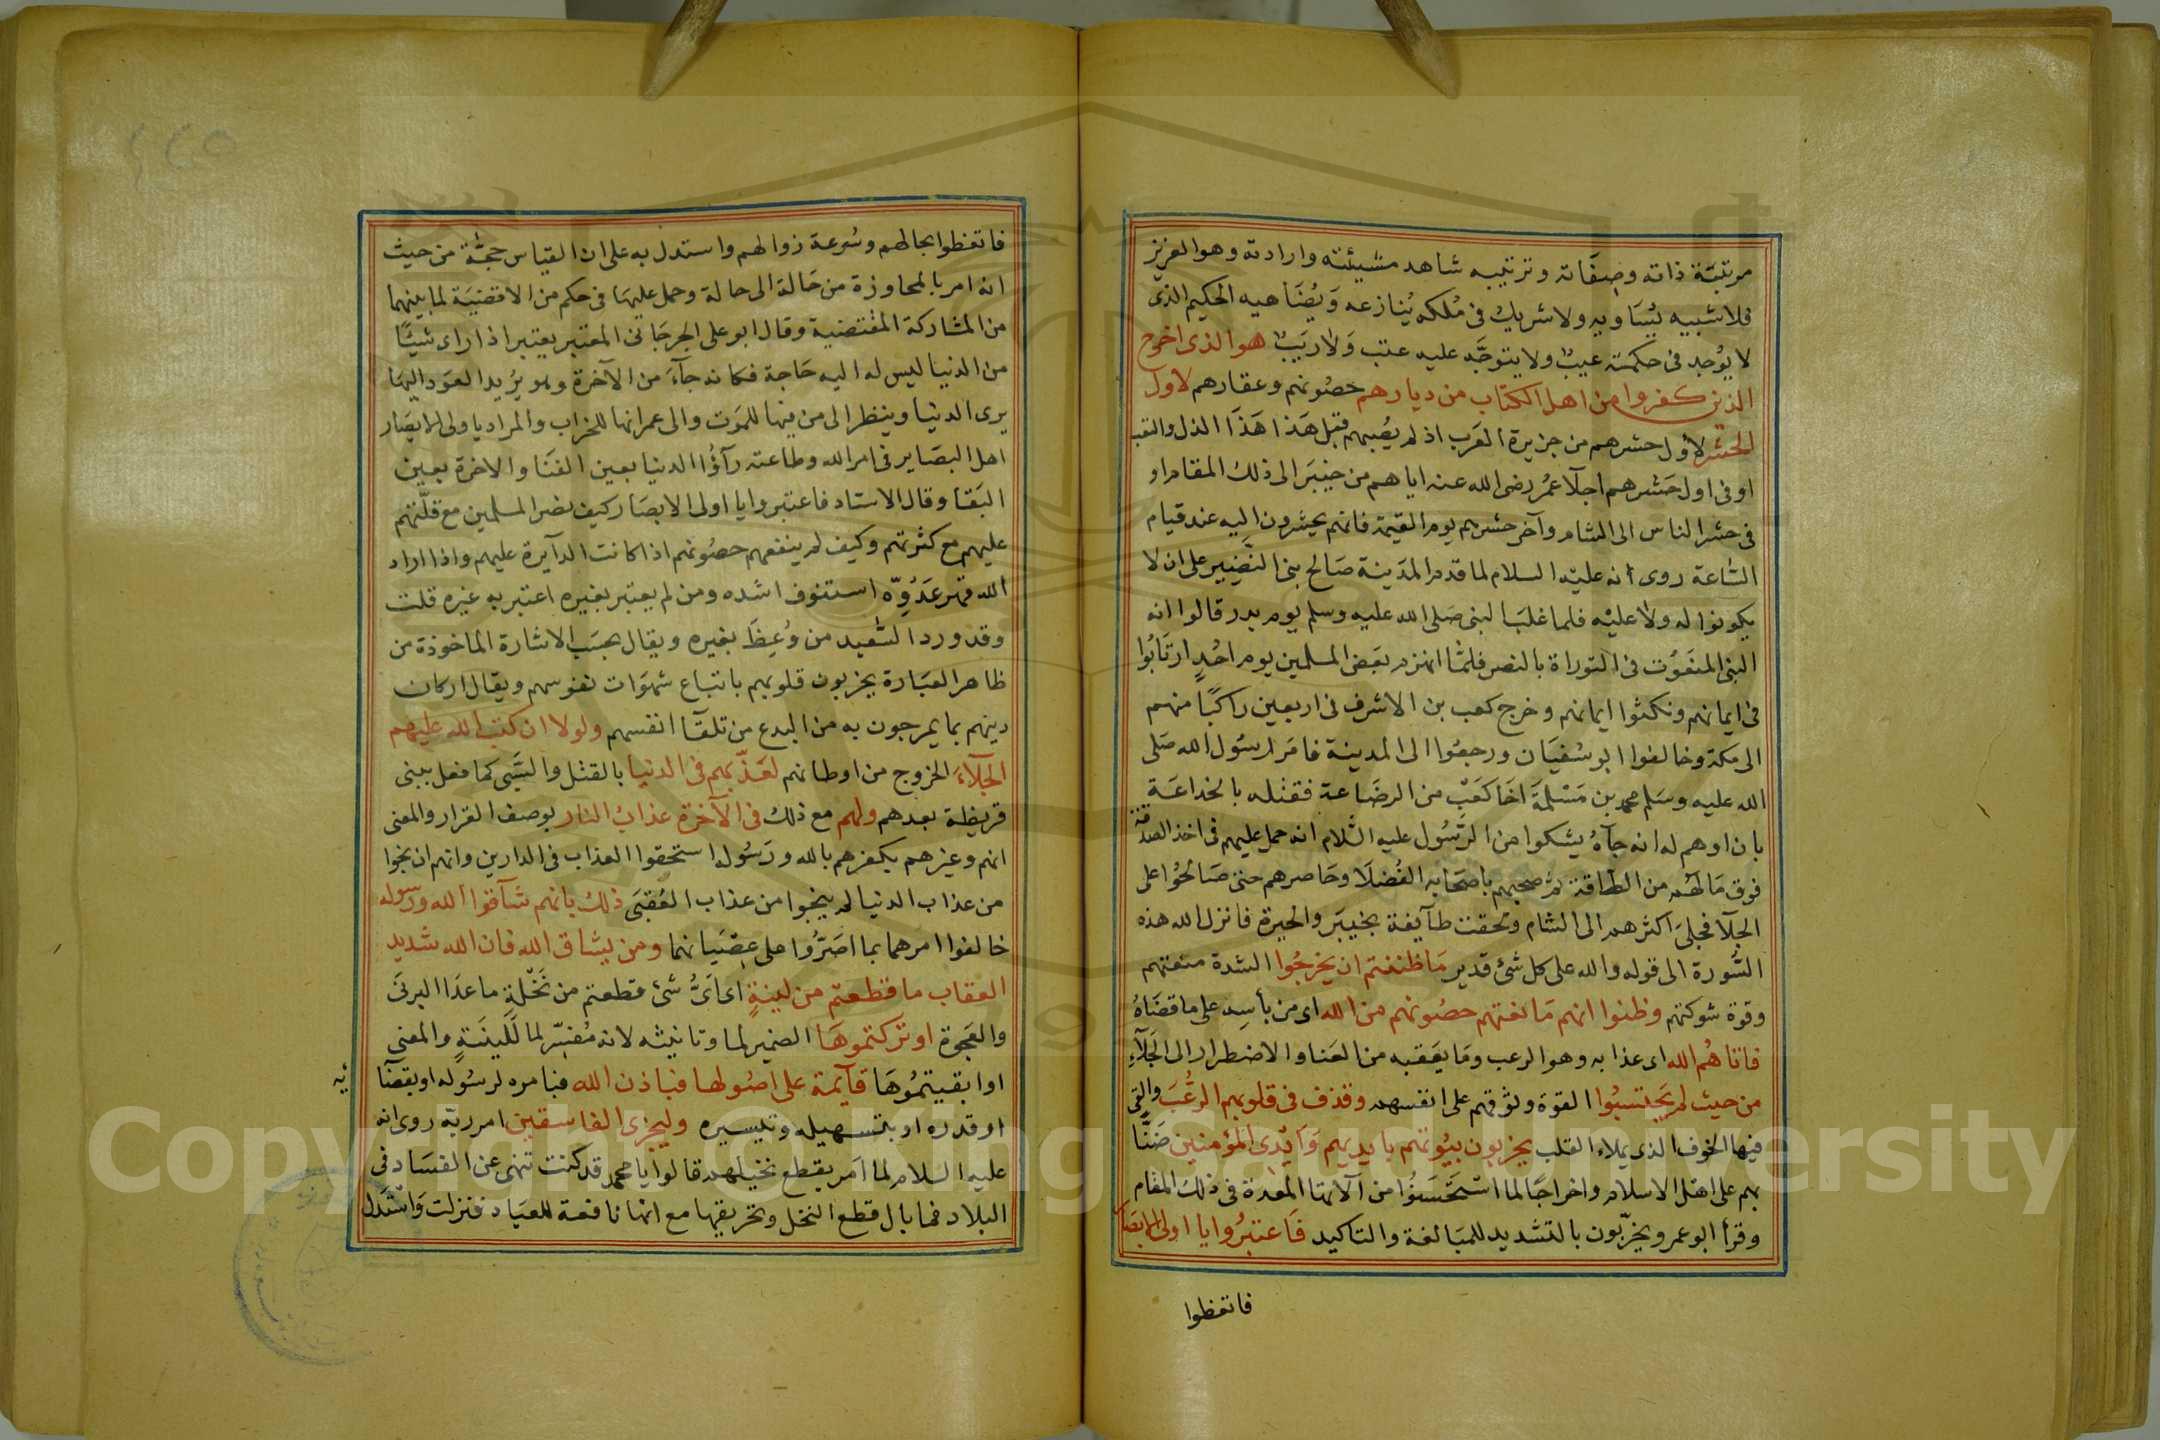 مرتبة ذاته وصفاته وترتيبه شاهد مشيئته وارادته وهو العزيز
فلا شبيه يساويه ولا شريك في ملكه ينازعه ويضاهيه الحكيم الذي
لا يوجد في حكمته عيب ولا يتوجه عليه عتب ولا ريب هو الذى اخرج
الذين كفروا من اهل الكتاب من ديارهم حصونهم وعقارهم لاول
الحشر لاول حشرهم من جزيرة العرب اذ لم يصبهم قبل هذا هذا الذل والتعب
او فى اول حشرهم اجلآ عمر رضى الله عنه اياهم من خيبر الى ذلك المقام او
فى حشر الناس الى الشام وآخر حشرهم يوم القيمة فانهم يحشرون اليه عند قيام
الساعة روى انه عليه السلام لما قدم المدينة صالح بنى النضير على ان لا
يكونوا له ولا عليه فلما غلب النبى صلى الله عليه وسلم يوم بدر قالوا انه
النبى المنعوت فى التوراة بالنصر فلما انهزم بعض المسلمين يوم احد ارتابوا
فى ايمانهم ونكثوا ايمانهم وخرج كعب بن الاشرف فى اربعين راكبا منهم
الى مكة وخالفوا ابو سفيان ورجعوا الى المدينة فامر رسول الله صلى
الله عليه وسلم محمد بن مسلمة اخا كعب من الرضاعة فقتله بالخداعة
بان اوهم له انه جآه يشكوا من الرسول عليه السلام انه حمل عليهم فى اخذ الصدقة
فوق مالهم من الطاقة ثم صبحهم باصحابه الفضلا وحاصرهم حتى صالحوا على
الجلآ فجلى اكثرهم الى الشام ولحقت طآيفة بخيبر والحيرة فانزل الله هذه
السورة الى قوله والله على كل شئ قدير ما ظننتم ان يخرجوا لشدة منعتهم
وقوة شوكتهم وظنوا انهم مانعتهم حصونهم من الله اى من بأسه على ما قضاه
فاتاهم الله اى عذابه وهو الرعب وما يعقبه من العنا والاضطرار الى الجلآء
من حيث لم يحتسبوا القوة وثوقهم على انفسهم وقذف فى قلوبهم الرعب والقى
فيها الخوف الذى يملاء القلب يخربون بيوتهم بايديهم وايدى المؤمنين ضنا
بهم على اهل الاسلام واخراجا لما استحسنوا من آلاتها المعدة فى ذلك المقام
وقرأ ابو عمرو يخربون بالتشديد للمبالغة والتاكيد فاعتبروا يا اولى الابصار
فاتعظوا
فاتعظوا بحالهم وسرعة زوالهم واستدل به على ان القياس حجة من حيث
انه امر بالمجاوزة من حالة الى حالة وحمل عليها فى حكم من الاقضية لما بينهما
من المشاركة المقتضية وقال ابو على الجرجانى المعتبر يعتبر اذا راى شيئا
من الدنيا ليس له اليه حاجة فكانه جآء من الآخرة وهو يريد العود اليها
يرى الدنيا وينظر الى من فيها للموت والى عمرانها للخراب والمراد ياولى الابصار
اهل البصاير فى امر الله وطاعته رآؤا الدنيا بعين الفنا والآخرة بعين
البقا وقال الاستاد فاعتبروا يا اولى الابصار كيف نصر المسلمين مع قلتهم
عليهم مع كثرتهم وكيف لم ينفعهم حصونهم اذا كانت الدآيرة عليهم واذا اراد
الله قهر عدوه استنوف اشده ومن لم يعتبر بغيره اعتبر به غيره قلت
وقد ورد السعيد من وعظ بغيره ويقال بحسب الاشارة الماخوذة من
ظاهر العبارة يخربون قلوبهم باتباع شهوات نفوسهم ويقال اركان
دينهم بما يمرجون به من البدع من تلقآ انفسهم ولولا ان كتب الله عليهم
الجلآء الخروج من اوطانهم لعذبهم فى الدنيا بالقتل والسبى كما فعل ببنى
قريظة بعدهم ولهم مع ذلك فى الآخرة عذاب النار بوصف القرار والمعنى
انهم وغيرهم بكفرهم بالله ورسوله استحقوا العذاب فى الدارين وانهم ان نجوا
من عذاب الدنيا لم ينجوا من عذاب العقبى ذلك بانهم شآقوا الله ورسوله
خالفوا امرهما بما اصروا على عصيانهما ومن يشاق الله فان الله شديد
العقاب ما قطعتم من لينة اى اى شئ قطعتم من نخلة ما عدا البرنى
والعجوة او تركتموها الضمير لما وتانيثه لانه مفسر لما للينة والمعنى
او ابقيتموها قآيمة على اصولها فباذن الله فبامره لرسوله او بقضآ
ئه
او قدره او بتسهيله وتيسيره وليخزى الفاسقين امر ربه روى انه
عليه السلام لما امر بقطع نخيلهم قالوا يا محمد قد كنت تنهى عن الفساد فى
البلاد فما بال قطع النخل وتحريقها مع انها نافعة للعباد فنزلت واستدل
Copyright © King Saud University